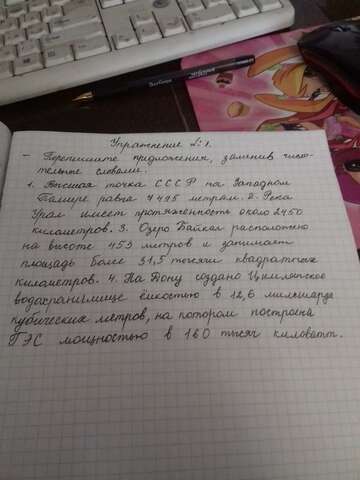 Упражнение №1.
– Перепишите предложения, заменив числи-
тельные словами.
1. Высшая точка СССР на Западном
Памире равна 7495 метрам. 2. Река
Урал имеет протяжённость около 2450
километров. 3. Озеро Байкал расположено
на высоте 453 метров и занимает
площадь более 31,5 тысячи квадратных
километров. 4. На Дону создано Цимлянское
водохранилище ёмкостью в 12,6 миллиарда
кубических метров, на котором построена
ГЭС мощностью в 160 тысяч киловатт.